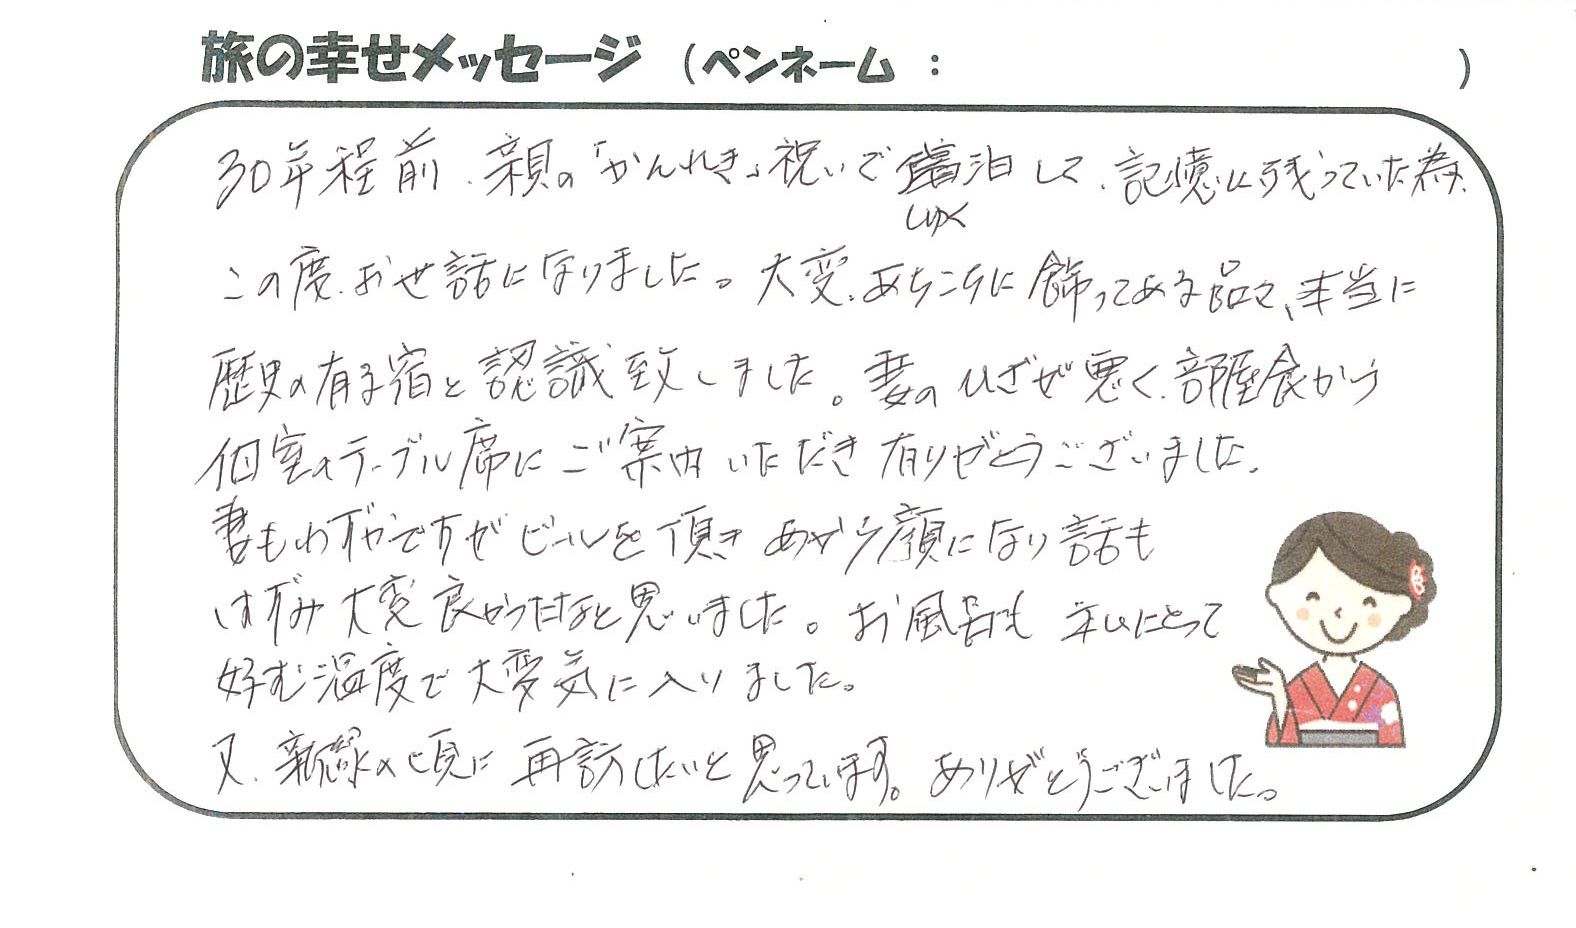 旅の幸せメッセージ （ペンネーム ： ）
30年程前、親の「かんれき」祝いで宿泊して、記憶に残っていた為、
しゅく
この度、お世話になりました。大変、あちこちに飾ってある品々、本当に
歴史の有る宿と認識致しました。妻のひざが悪く、部屋食から
個室のテーブル席にご案内いただき有りがとうございました。
妻もわずかですがビールを頂き あから顔になり話も
はずみ大変良かったなと思いました。お風呂も 私にとって
好む温度で大変気に入りました。
又、新緑の頃に再訪したいと思っています。ありがとうございました。